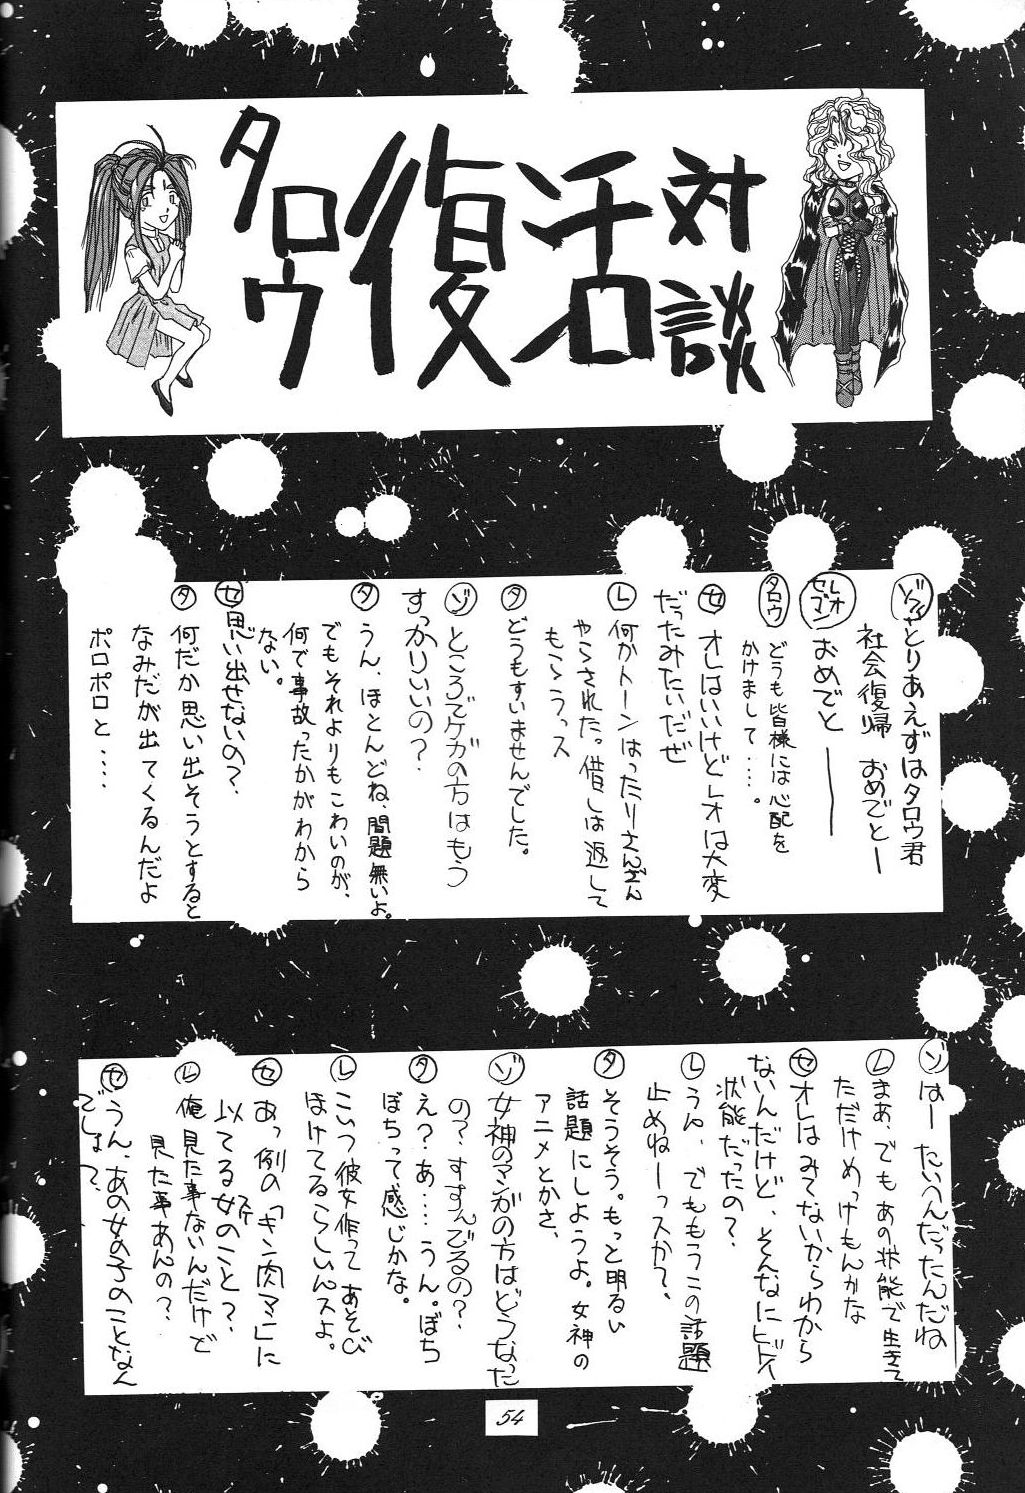 タロウ復活対談
ゾフィーとりあえずはタロウ君
社会復帰 おめでとー
レオ
セブン
おめでとーーー
タロウ どうも皆様には心配を
かけまして‥‥。
セ オレはいいけどレオは大変
だったみたいだぜ
レ 何かトーンはったりさんざん
やらされた。借しは返して
もらうっス
タ どうもすいませんでした。
ゾ ところでケガの方はもう
すっかりいいの?
タ うん、ほとんどね、問題無いよ。
でもそれよりもこわいのが、
何で事故ったかがわから
ない。
セ 思い出せないの?
タ 何だか思い出そうとすると
なみだが出てくるんだよ
ポロポロと‥‥
ゾ はー たいへんだったんだね
レ まあ、でもあの状態で生きて
ただけめっけもんかな
セ オレはみてないからわから
ないんだけど、そんなにヒドイ
状態だったの?
レ うん、でももうこの話題
止めねーっスか?
タ そうそう。もっと明るい
話題にしようよ。女神の
アニメとかさ、
ゾ 女神のマンガの方はどうなった
の?、すすんでるの?
タ え?あ‥‥うん。ぼちぼち
ぼちって感じかな。
レ こいつ彼女作って あそび
ほけてるらしいんスよ。
セ あっ例の「キン肉マン」に
以てる女のこと?
レ 俺見た事ないんだけど
見た事あんの?
セ うん、あの女の子のことなん
でしょ?
54